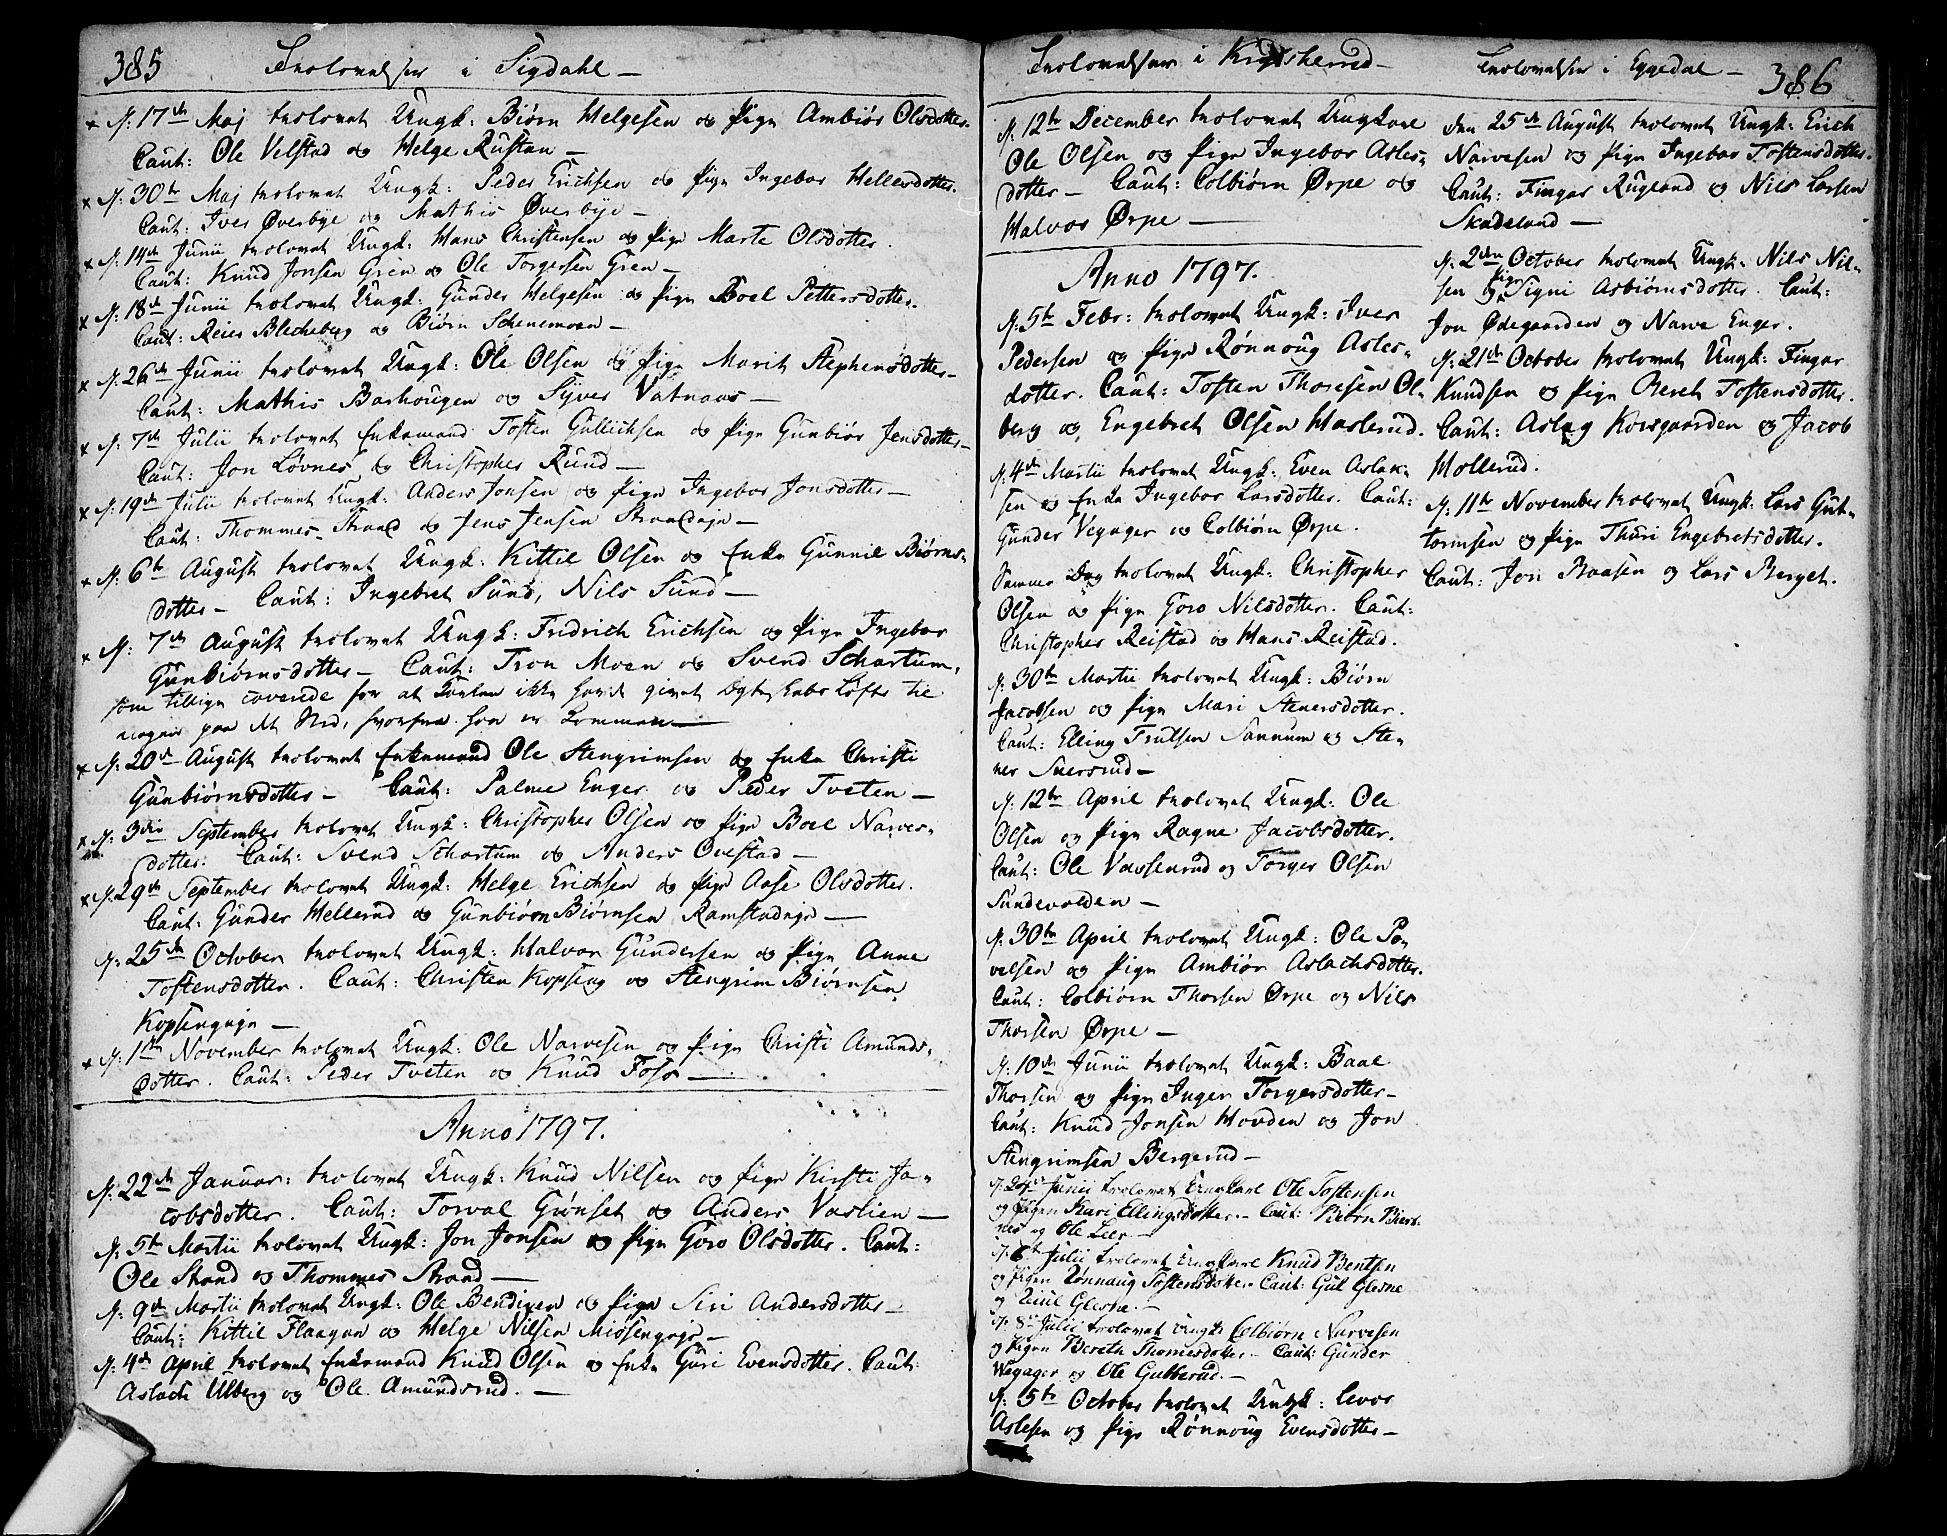 385 Trolovelser i Sigdahl —
× d: 17de Maj trolovet Ungk: Biørn Helgesen og Pige Ambiør Olsdotter.
Caut: Ole Velstad og Helge Rustan —
× d: 30te Maj trolovet Ungk: Peder Erichsen og Pige Ingebor Hellersdotter.
Caut: Iver Øverbye og Mathis Øverbye —
× d: 14de Junii trolovet Ungk: Hans Christensen og Pige Marte Olsdotter.
Caut: Knud Jonsen Gren og Ole Torgersen Gren —
× d: 18de Junii trolovet Ungk: Gunder Helgesen og Pige Boel Pettersdotter.
Caut: Reier Blecheberg og Biørn Schenemoen —
× d: 26de Junii trolovet Ungk: Ole Olsen og Pige Marit Stephensdotter —
Caut: Mathis Barhougen og Syver Vatnaas —
× d: 7de Julii trolovet Enkemand Tosten Gullichsen og Pige Gunbiør Jensdotter —
Caut: Jon Løvnes og Christopher Rund —
× d: 19de Julii trolovet Ungk: Anders Jonsen og Pige Ingebor Jonsdotter —
Caut: Thommes Strand og Jens Jensen Strandeje —
× d: 6te August trolovet Ungk: Kittil Olsen og Enke Gunnil Biørns-
dotter — Caut: Ingebret Sund, Nils Sund —
× d: 7de August trolovet Ungk: Fridrich Erichsen og Pige Ingebor
Gunbiørnsdotter — Caut: Tron Moen og Svend Schartum,
som tillige caverede for at Karlen ikke havde givet Egteskabs Løfte til
nogen paa det Sted, hvorfra han er kommen —
× d: 20de August trolovet Enkemand Ole Stengrimsen og Enke Christi
Gunbiørnsdotter — Caut: Palme Enger og Peder Tveten —
× d: 3die September trolovet Ungk: Christopher Olsen og Pige Boel Narves-
dotter. Caut: Svend Schartum og Anders Ovestad —
× d: 29de September trolovet Ungk: Helge Erichsen og Pige Aase Olsdotter.
Caut: Gunder Hellerud og Gunbiørn Biørnsen Ramstadeje —
d: 25de October trolovet Ungk: Halvor Gundersen og Pige Anne
Tostensdotter. Caut: Christen Kopseng og Stengrim Biørnsen
Kopsengeje —
× d: 1ste November trolovet Ungk: Ole Narvesen og Pige Christi Amunds-
dotter. Caut: Peder Tveten og Knud Foss —
Anno 1797.
d: 22de Januar: trolovet Ungk: Knud Nilsen og Pige Kirsti Ja-
cobsdotter. Caut: Torval Grønset og Anders Vaslien —
d: 5te Martii trolovet Ungk: Jon Jonsen og Pige Goro Olsdotter. Caut:
Ole Strand og Thommes Strand —
d: 9de Martii trolovet Ungk: Ole Bendixen og Pige Siri Andersdotter —
Caut: Kittil Flaagan og Helge Nilsen Miøsengeje —
d: 4de April trolovet Enkemand Knud Olsen og Enke Guri Evensdotter. Caut:
Aslach Ulberg og Ole Amundsrud. —
Trolovelser i Krydsherred —
d: 12te December trolovet Ungkarl
Ole Olsen og Pige Ingebor Asles-
dotter — Caut: Colbiørn Ørpe og
Halvor Ørpe —
Anno 1797.
d: 5te Febr: trolovet Ungk: Iver
Pedersen og Pige Rønnoug Asles-
dotter. Caut: Tosten Thoresen Ol-
berg og Engebret Olsen Haslerud.
d: 4de Martii trolovet Ungk: Even Aslak-
sen og Enke Ingebor Larsdotter. Caut:
Gunder Vegager og Colbiørn Ørpe.
Samme Dag trolovet Ungk: Christopher
Olsen og Pige Goro Nilsdotter. Caut:
Christopher Reistad og Hans Reistad.
d: 30te Martii trolovet Ungk: Biørn
Jacobsen og Pige Mari Stenersdotter.
Caut: Elling Trulsen Sannum og Ste-
ner Snersrud —
d: 12te April trolovet Ungk: Ole
Olsen og Pige Ragne Jacobsdotter.
Caut: Ole Vassenrud og Torger Olsen
Sundevolden —
d: 30te April trolovet Ungk: Ole Po-
velsen og Pige Ambiør Aslachsdotter.
Caut: Colbiørn Thorsen Ørpe og Nils
Thorsen Ørpe —
d: 10de Junii trolovet Ungk: Baal
Thorsen og Pige Inger Torgersdotter —
Caut: Knud Jonsen Hovden og Jon
Stengrimsen Bergerud —
d: 24de Junii trolovet Ungkarl Ole Tostensen
og Pigen Kari Ellingsdotter. — Caut: Biørn Biert-
nes og Ole Leer —
d: 6te Julii trolovet Ungkarl Knud Bentsen
og Pigen Rønnaug Tostensdotter. Caut: Gul Glesne
og Glesne. —
d: 8de Julii trolovet Ungk: Colbiørn Narvesen
og Pigen Bereth Thomesdotter. Caut: Gunder
Wegager og Ole Gubberud. —
d: 5te October trolovet Ungk: Levor
Aslesen og Pige Rønnoug Evensdotter —
Trolovelser i Eggedal — 386
den 25de August trolovet Ungk: Erich
Narvesen og Pige Ingebor Tostensdotter.
Caut: Fingar Rugland og Nils Larsen
Skadeland —
d: 2den October trolovet Ungk: Nils Nil-
sen og Pige Signi Asbiørnsdotter. Caut:
Jon Ødegaarden og Narve Enger.
d: 21de October trolovet Ungk: Fingar
Knudsen og Pige Beret Tostensdotter.
Caut: Aslag Korsgaarden og Jacob
Hollerud.
d: 11te November trolovet Ungk: Lars Gut-
tormsen og Pige Thuri Engebretsdotter.
Caut: Jon Baasen og Lars Berget.